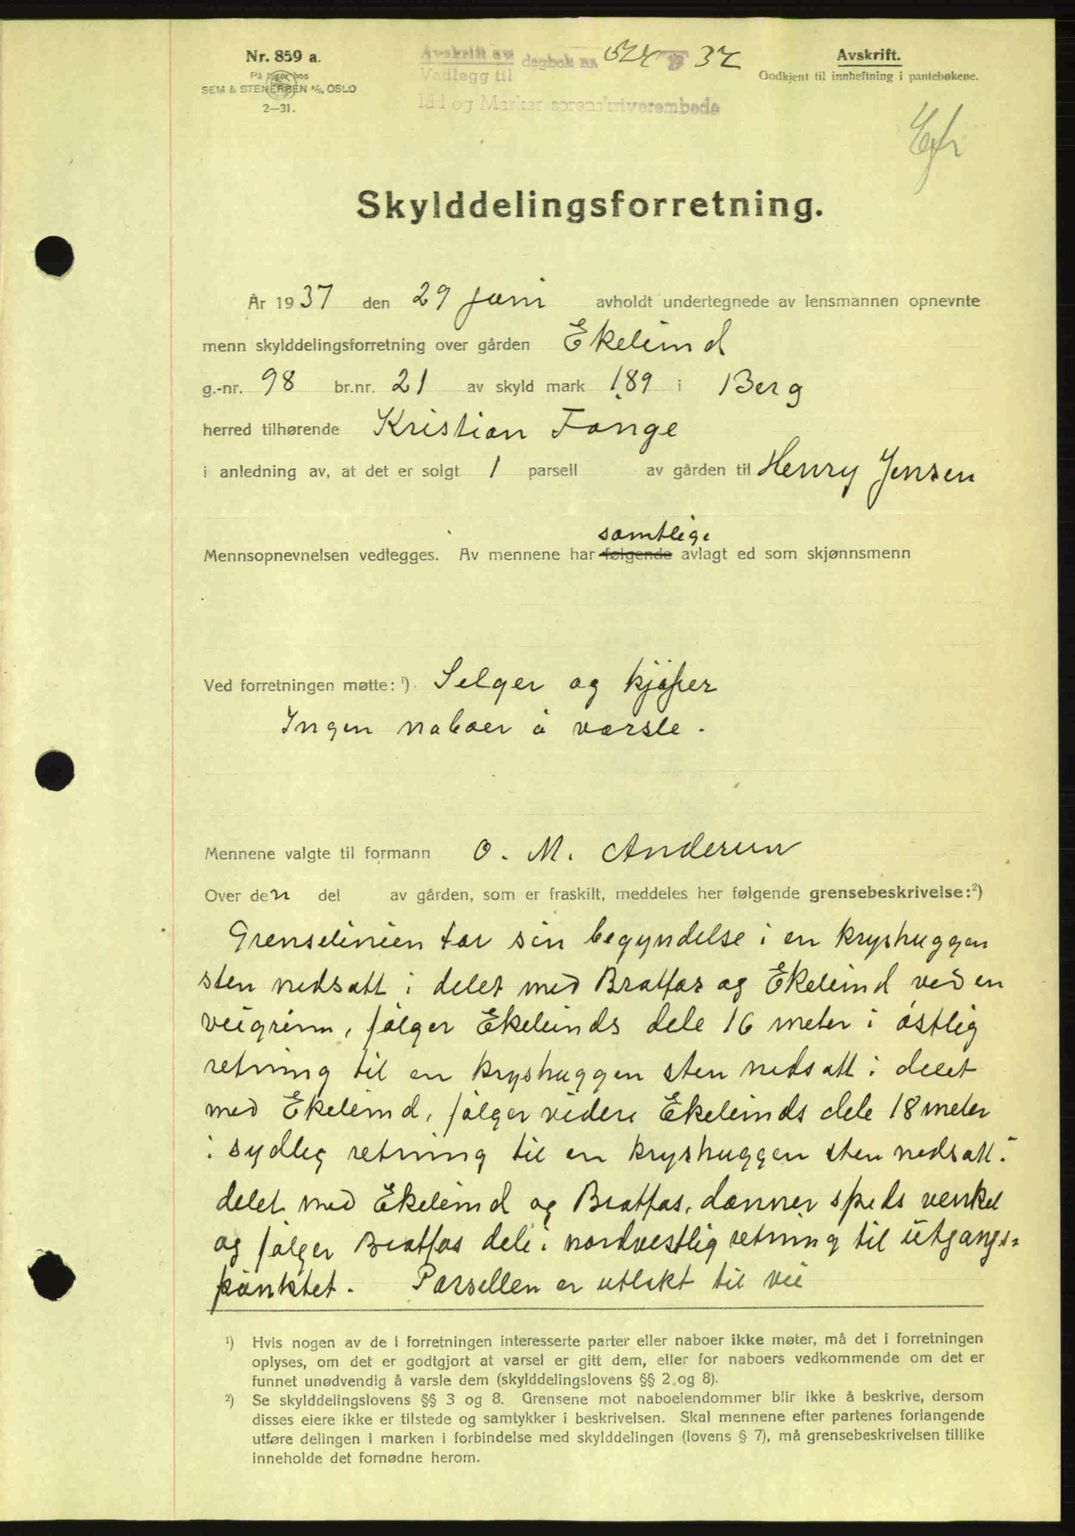 Nr. 859 a.
På lager hos
SEM & STENERSEN A/S, OSLO
2–31.
Avskrift av
Vedlegg til dagbok nr. 37
Idd og Marker sorenskriverembede
Avskrift.
Godkjent til innheftning i pantebøkene.
Skylddelingsforretning.
År 1937 den 29 juni avholdt undertegnede av lensmannen opnevnte
menn skylddelingsforretning over gården Ekelund
g.-nr. 98 br.nr. 21 av skyld mark 1,89 i Berg
herred tilhørende Kristian Fange
i anledning av, at det er solgt 1 parsell av gården til Henry Jensen
samtlige
Mennsopnevnelsen vedlegges. Av mennene har følgende avlagt ed som skjønnsmenn
Ved forretningen møtte: ¹) Selger og kjøper
Ingen naboer å varsle.
Mennene valgte til formann O. M. Andersen
Over den del av gården, som er fraskilt, meddeles her følgende grensebeskrivelse:²)
Grenselinien tar sin begyndelse i en kryshuggen
sten nedsatt i delet med Bratfas og Ekelund ved en
veigrinn, følger Ekelunds dele 16 meter i østlig
retning til en kryshuggen sten nedsatt i delet
med Ekelund, følger videre Ekelunds dele 18 meter
i sydlig retning til en kryshuggen sten nedsatt i
delet med Ekelund og Bratfas, danner spids venkel
og følger Bratfas dele i nordvestlig retning til utgangs=
punktet. Parsellen er utlakt til vei
¹) Hvis nogen av de i forretningen interesserte parter eller naboer ikke møter, må det i forretningen
oplyses, om det er godtgjort at varsel er gitt dem, eller for naboers vedkommende om det er
funnet unødvendig å varsle dem (skylddelingslovens §§ 2 og 8).
²) Se skylddelingslovens §§ 3 og 8. Grensene mot naboeiendommer blir ikke å beskrive, dersom
disses eiere ikke er tilstede og samtykker i beskrivelsen. Skal mennene efter partenes forlangende
utføre delingen i marken i forbindelse med skylddelingen (lovens § 7), må grensebeskrivelsen tillike
inneholde det fornødne herom.